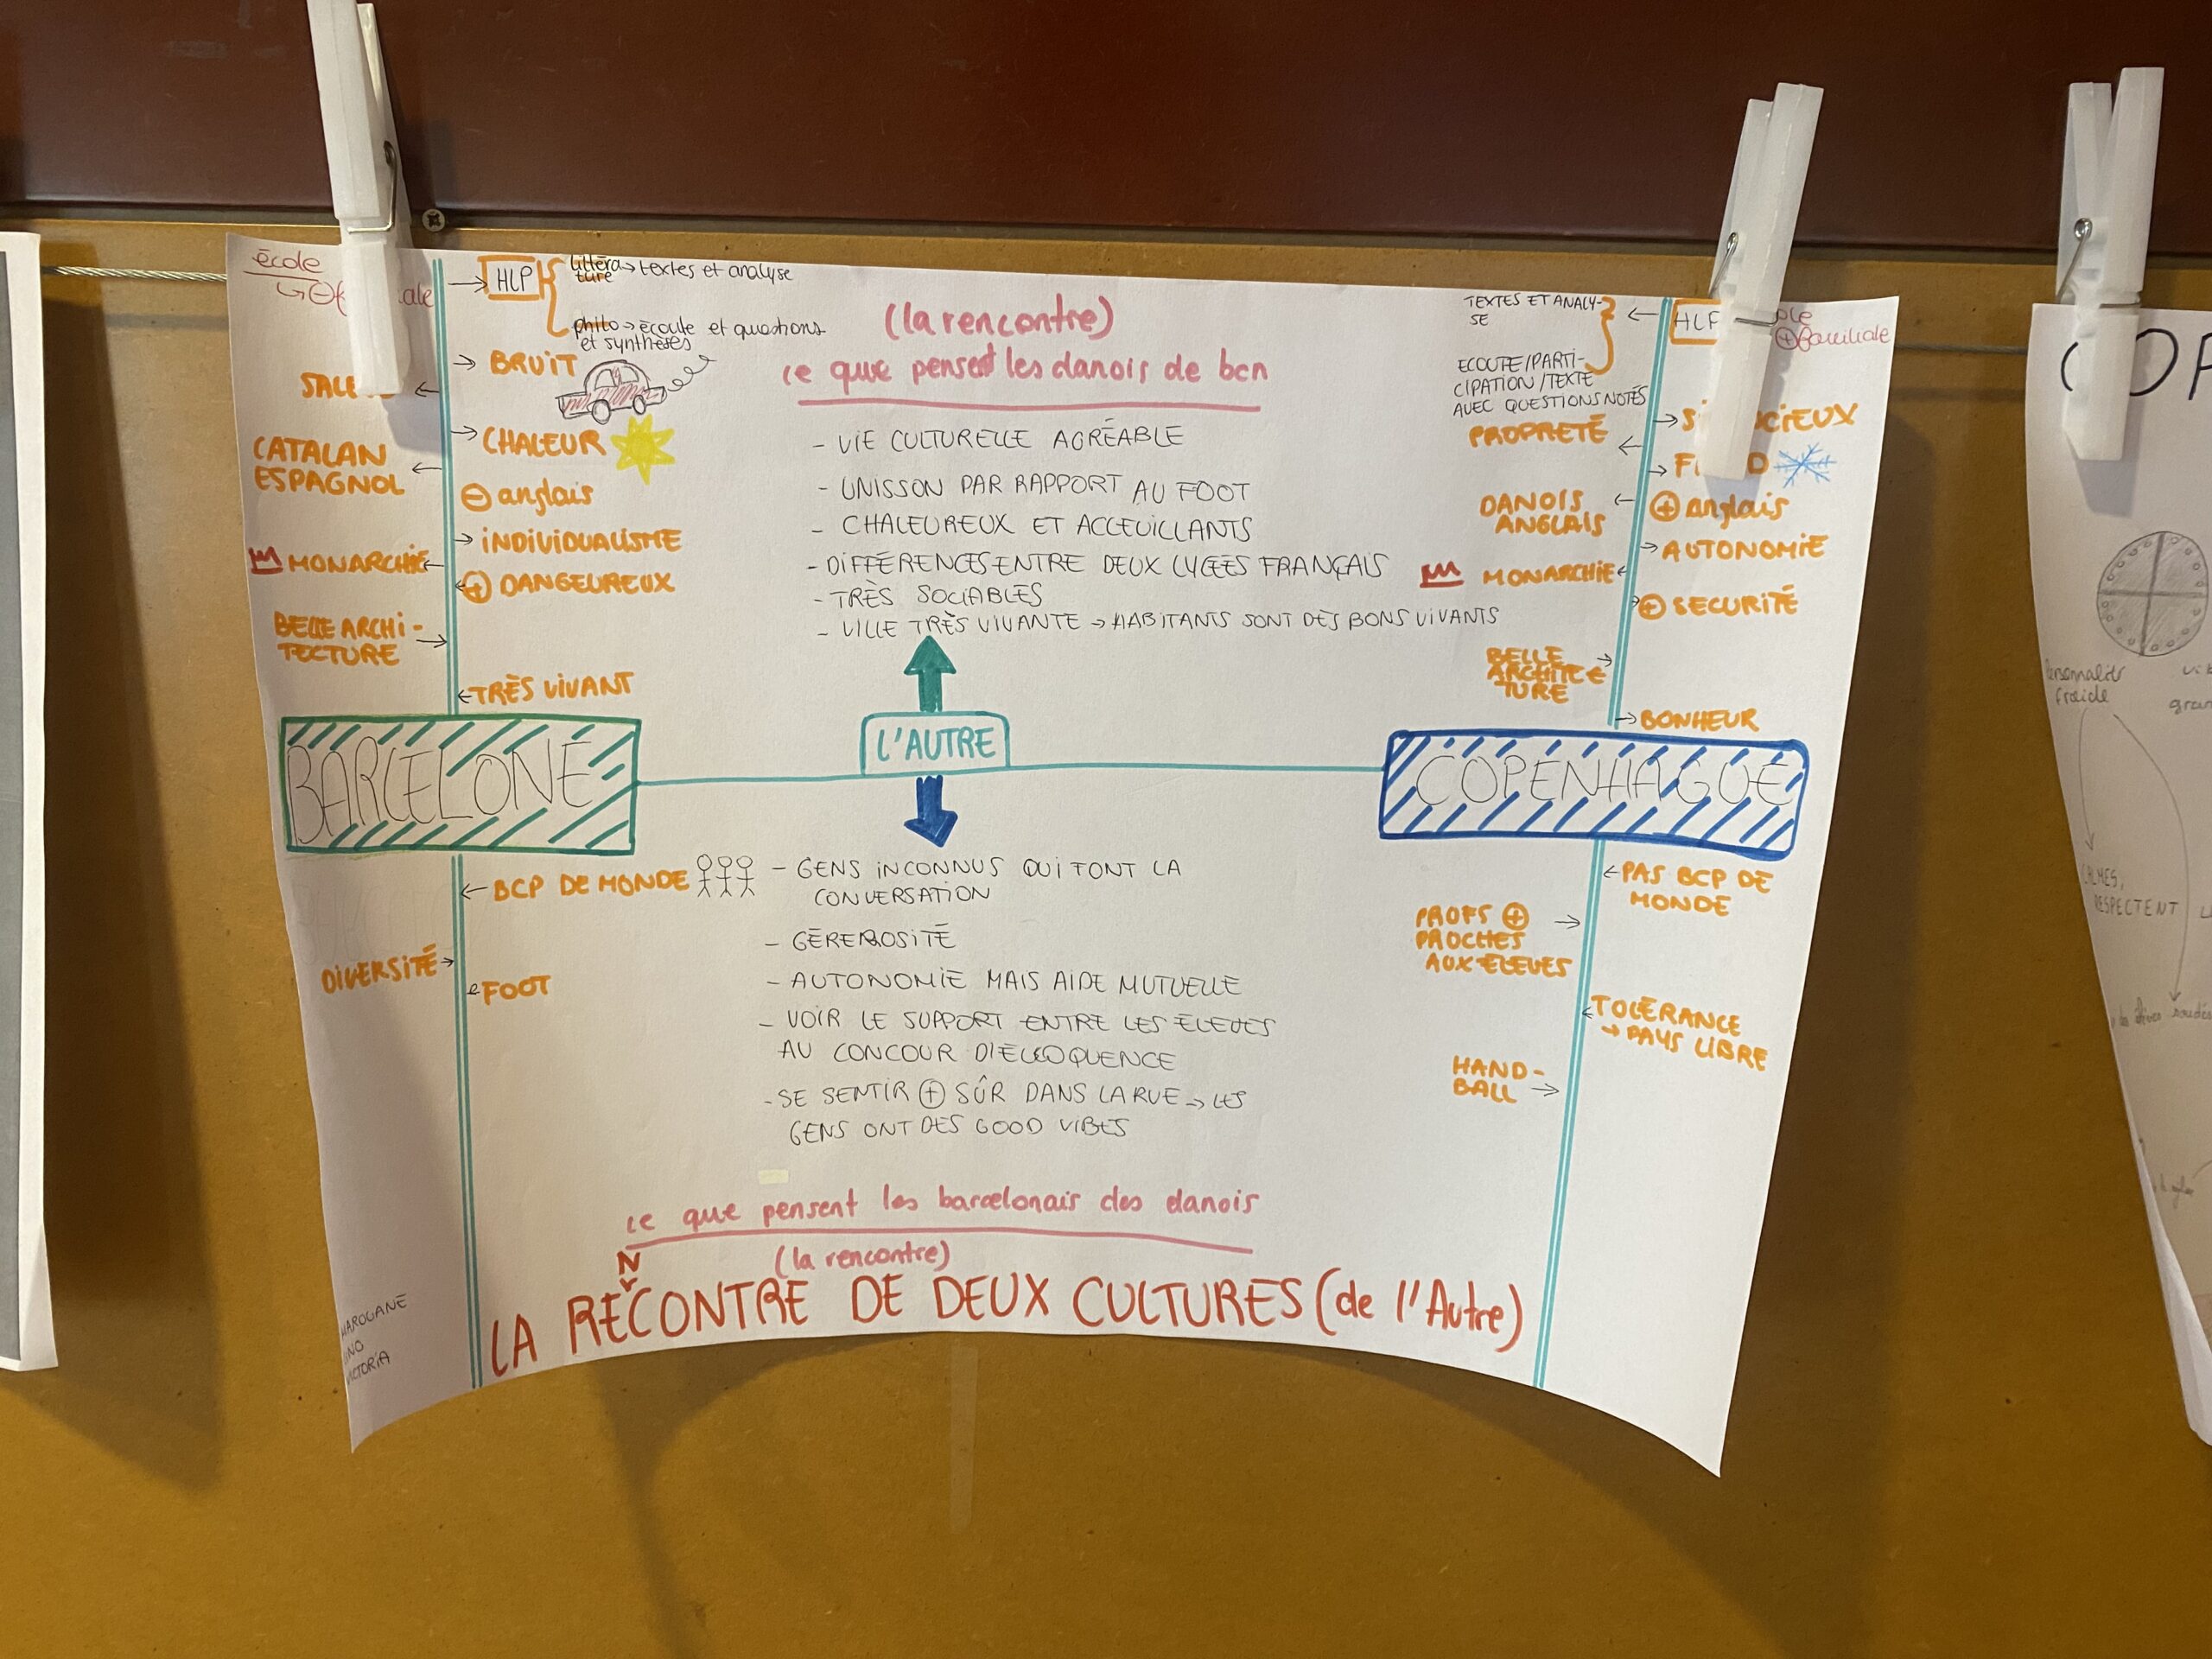 école
HLP
littéra
ture → textes et analyse
philo → écoute et questions
et synthèses
BRUIT
CHALEUR
CATALAN
ESPAGNOL
⊖ anglais
→ INDIVIDUALISME
MONARCHIE
⊕ DANGEUREUX
BELLE ARCHI-
TECTURE
TRÈS VIVANT
BARCELONE
BCP DE MONDE
DIVERSITÉ
FOOT
(la rencontre)
ce que pensent les danois de bcn
- VIE CULTURELLE AGRÉABLE
- UNISSON PAR RAPPORT AU FOOT
- CHALEUREUX ET ACCEUILLANTS
- DIFFÉRENCES ENTRE DEUX LYCÉES FRANÇAIS
- TRÈS SOCIABLES
- VILLE TRÈS VIVANTE → HABITANTS SONT DES BONS VIVANTS
L'AUTRE
- GENS INCONNUS QUI FONT LA
CONVERSATION
- GÉREROSITÉ
- AUTONOMIE MAIS AIDE MUTUELLE
- VOIR LE SUPPORT ENTRE LES ÉLEVES
AU CONCOUR D'ELOQUENCE
- SE SENTIR ⊕ SÛR DANS LA RUE → LES
GENS ONT DES GOOD VIBES
ce que pensent les barcelonais des danois
(la rencontre)
TEXTES ET ANALY-
SE
ECOUTE/PARTI-
CIPATION/TEXTE
AVEC QUESTIONS NOTÉS
⊕ familiale
PROPRETÉ
DANOIS
ANGLAIS
⊕ anglais
AUTONOMIE
MONARCHIE
⊕ SECURITÉ
BELLE
ARCHITEC
TURE
BONHEUR
COPENHAGUE
PAS BCP DE
MONDE
PROFS ⊕
PROCHES
AUX ELEVES
TOLÉRANCE
→ PAYS LIBRE
HAND-
BALL
N
LA RECONTRE DE DEUX CULTURES (de l'Autre)
personnalité
froide
RESPECTENT